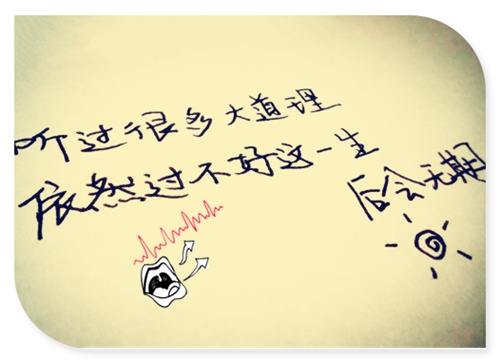 听过很多大道理
依然过不好这一生
后会无期